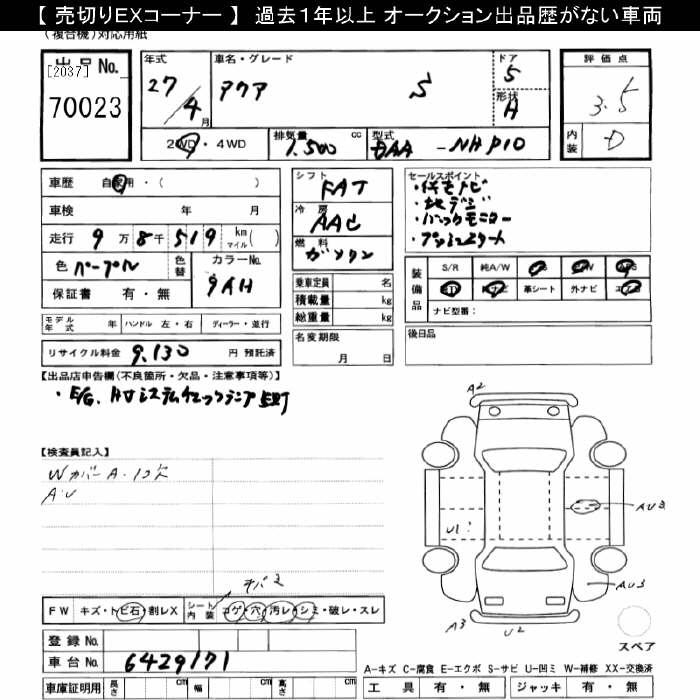 【 売切りEXコーナー 】 過去１年以上 オークション出品歴がない車両
（複合機）対応用紙
出品No.
[2037]
70023
年式
27/4月
車名・グレード
アクア S
ドア
5
形状
H
評価点
3.5
内装
D
2WD・4WD
排気量 1,500 cc
型式 DAA-NHP10
車歴 自家用・( )
車検 年 月
走行 9万8千519 km マイル ( )
色 パープル
色替
カラーNo. 9AH
保証書 有・無
シフト
FAT
冷房
AAC
燃料
ガソリン
乗車定員 名
積載量 kg
総重量 kg
セールスポイント
・純正ナビ
・地デジ
・バックモニター
・プッシュスタート
装備品
S/R 純A/W PS P/W ABS
革シート 外ナビ エアB
ナビ型番：
モデル年式 年 ハンドル 左・右 ディーラー・並行
名変期限
月 日
後日品
リサイクル料金 9,130 円 預託済
【出品店申告欄(不良箇所・欠品・注意事項等)】
・E/G、HVシステムチェックランプ点灯
【検査員記入】
Wカバー A・1コ欠
A・U
A2
AU3
U1
AU3
A3
U2
スペア
FW キズ・トビ石・割レX
シート内装 コゲ・穴・汚レ・シミ・破レ・スレ
登録No.
車台No. 6429171
車庫証明用 長さ cm 幅 cm 高さ cm
A-キズ C-腐食 E-エクボ S-サビ U-凹ミ W-補修 XX-交換済
工具 有・無 ジャッキ 有・無